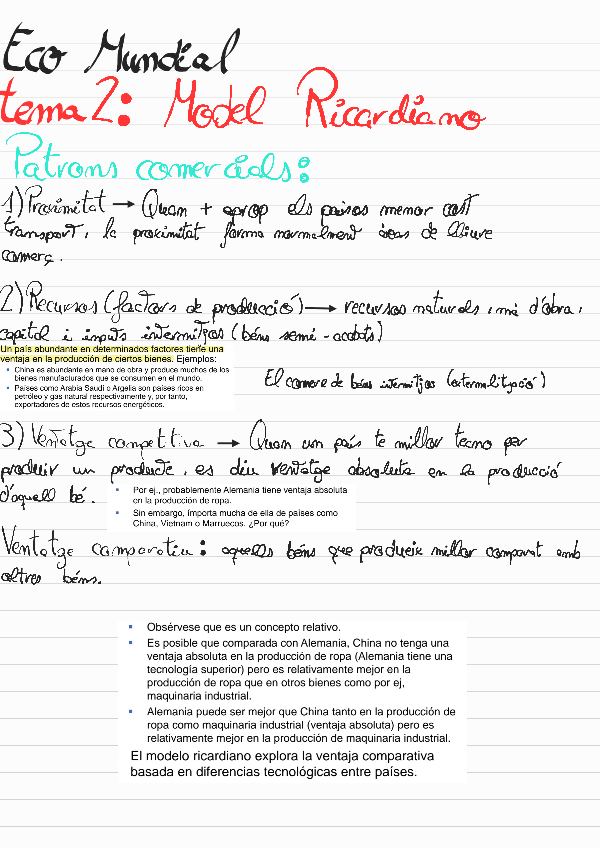 Eco Mundial
tema 2: Model Ricardiano
Patrons comercials:
1) Proximitat → Quan + aprop els països menor cost
transport, la proximitat forma normalment àrees de lliure
comerç.
2) Recursos (factors de producció) → recursos naturals, mà d'obra,
capital i inputs intermitjos (béns semi-acabats)
Un país abundante en determinados factores tiene una
ventaja en la producción de ciertos bienes. Ejemplos:
• China es abundante en mano de obra y produce muchos de los
bienes manufacturados que se consumen en el mundo.
• Países como Arabia Saudí o Argelia son países ricos en
petróleo y gas natural respectivamente y, por tanto,
exportadores de estos recursos energéticos.
El comerç de béns intermitjos (externalització)
3) Ventatge competitiva → Quan un país te millor tecno per
produir un producte, es diu ventatge absoluta en la producció
d'aquell bé.
• Por ej., probablemente Alemania tiene ventaja absoluta
en la producción de ropa.
• Sin embargo, importa mucha de ella de países como
China, Vietnam o Marruecos. ¿Por qué?
Ventatge comparativa: aquells béns que produeix millor comparat amb
altres béns.
• Obsérvese que es un concepto relativo.
• Es posible que comparada con Alemania, China no tenga una
ventaja absoluta en la producción de ropa (Alemania tiene una
tecnología superior) pero es relativamente mejor en la
producción de ropa que en otros bienes como por ej,
maquinaria industrial.
• Alemania puede ser mejor que China tanto en la producción de
ropa como maquinaria industrial (ventaja absoluta) pero es
relativamente mejor en la producción de maquinaria industrial.
El modelo ricardiano explora la ventaja comparativa
basada en diferencias tecnológicas entre países.